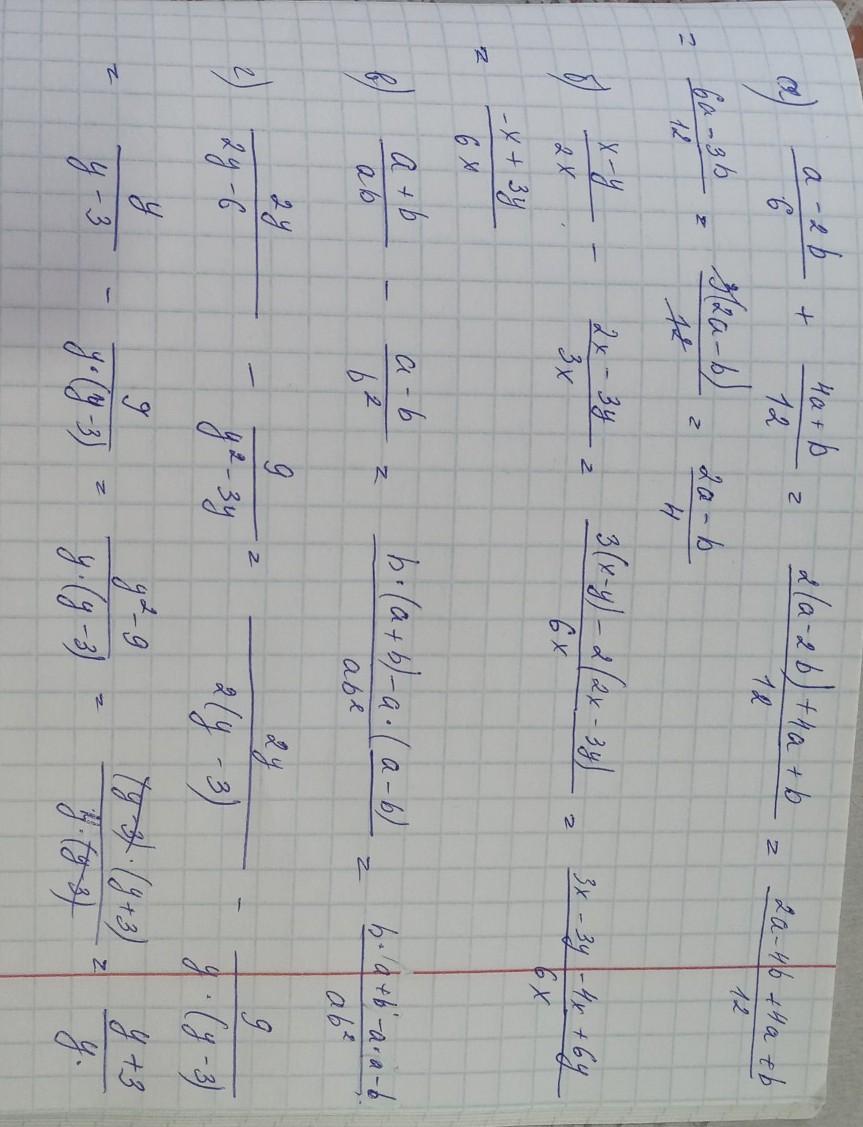 а) (a - 2b)/6 + (4a + b)/12 = (2(a - 2b) + 4a + b)/12 = (2a - 4b + 4a + b)/12
= (6a - 3b)/12 = 3(2a - b)/12 = (2a - b)/4
б) (x - y)/2x - (2x - 3y)/3x = (3(x - y) - 2(2x - 3y))/6x = (3x - 3y - 4x + 6y)/6x
= (-x + 3y)/6x
в) (a + b)/ab - (a - b)/b² = (b·(a + b) - a·(a - b))/ab² = (b·a + b - a·a - b)/ab²
г) 2y/(2y - 6) - 9/(y² - 3y) = 2y/2(y - 3) - 9/y·(y - 3)
= y/(y - 3) - 9/y·(y - 3) = (y² - 9)/y·(y - 3) = (y - 3)·(y + 3)/y·(y - 3) = (y + 3)/y.